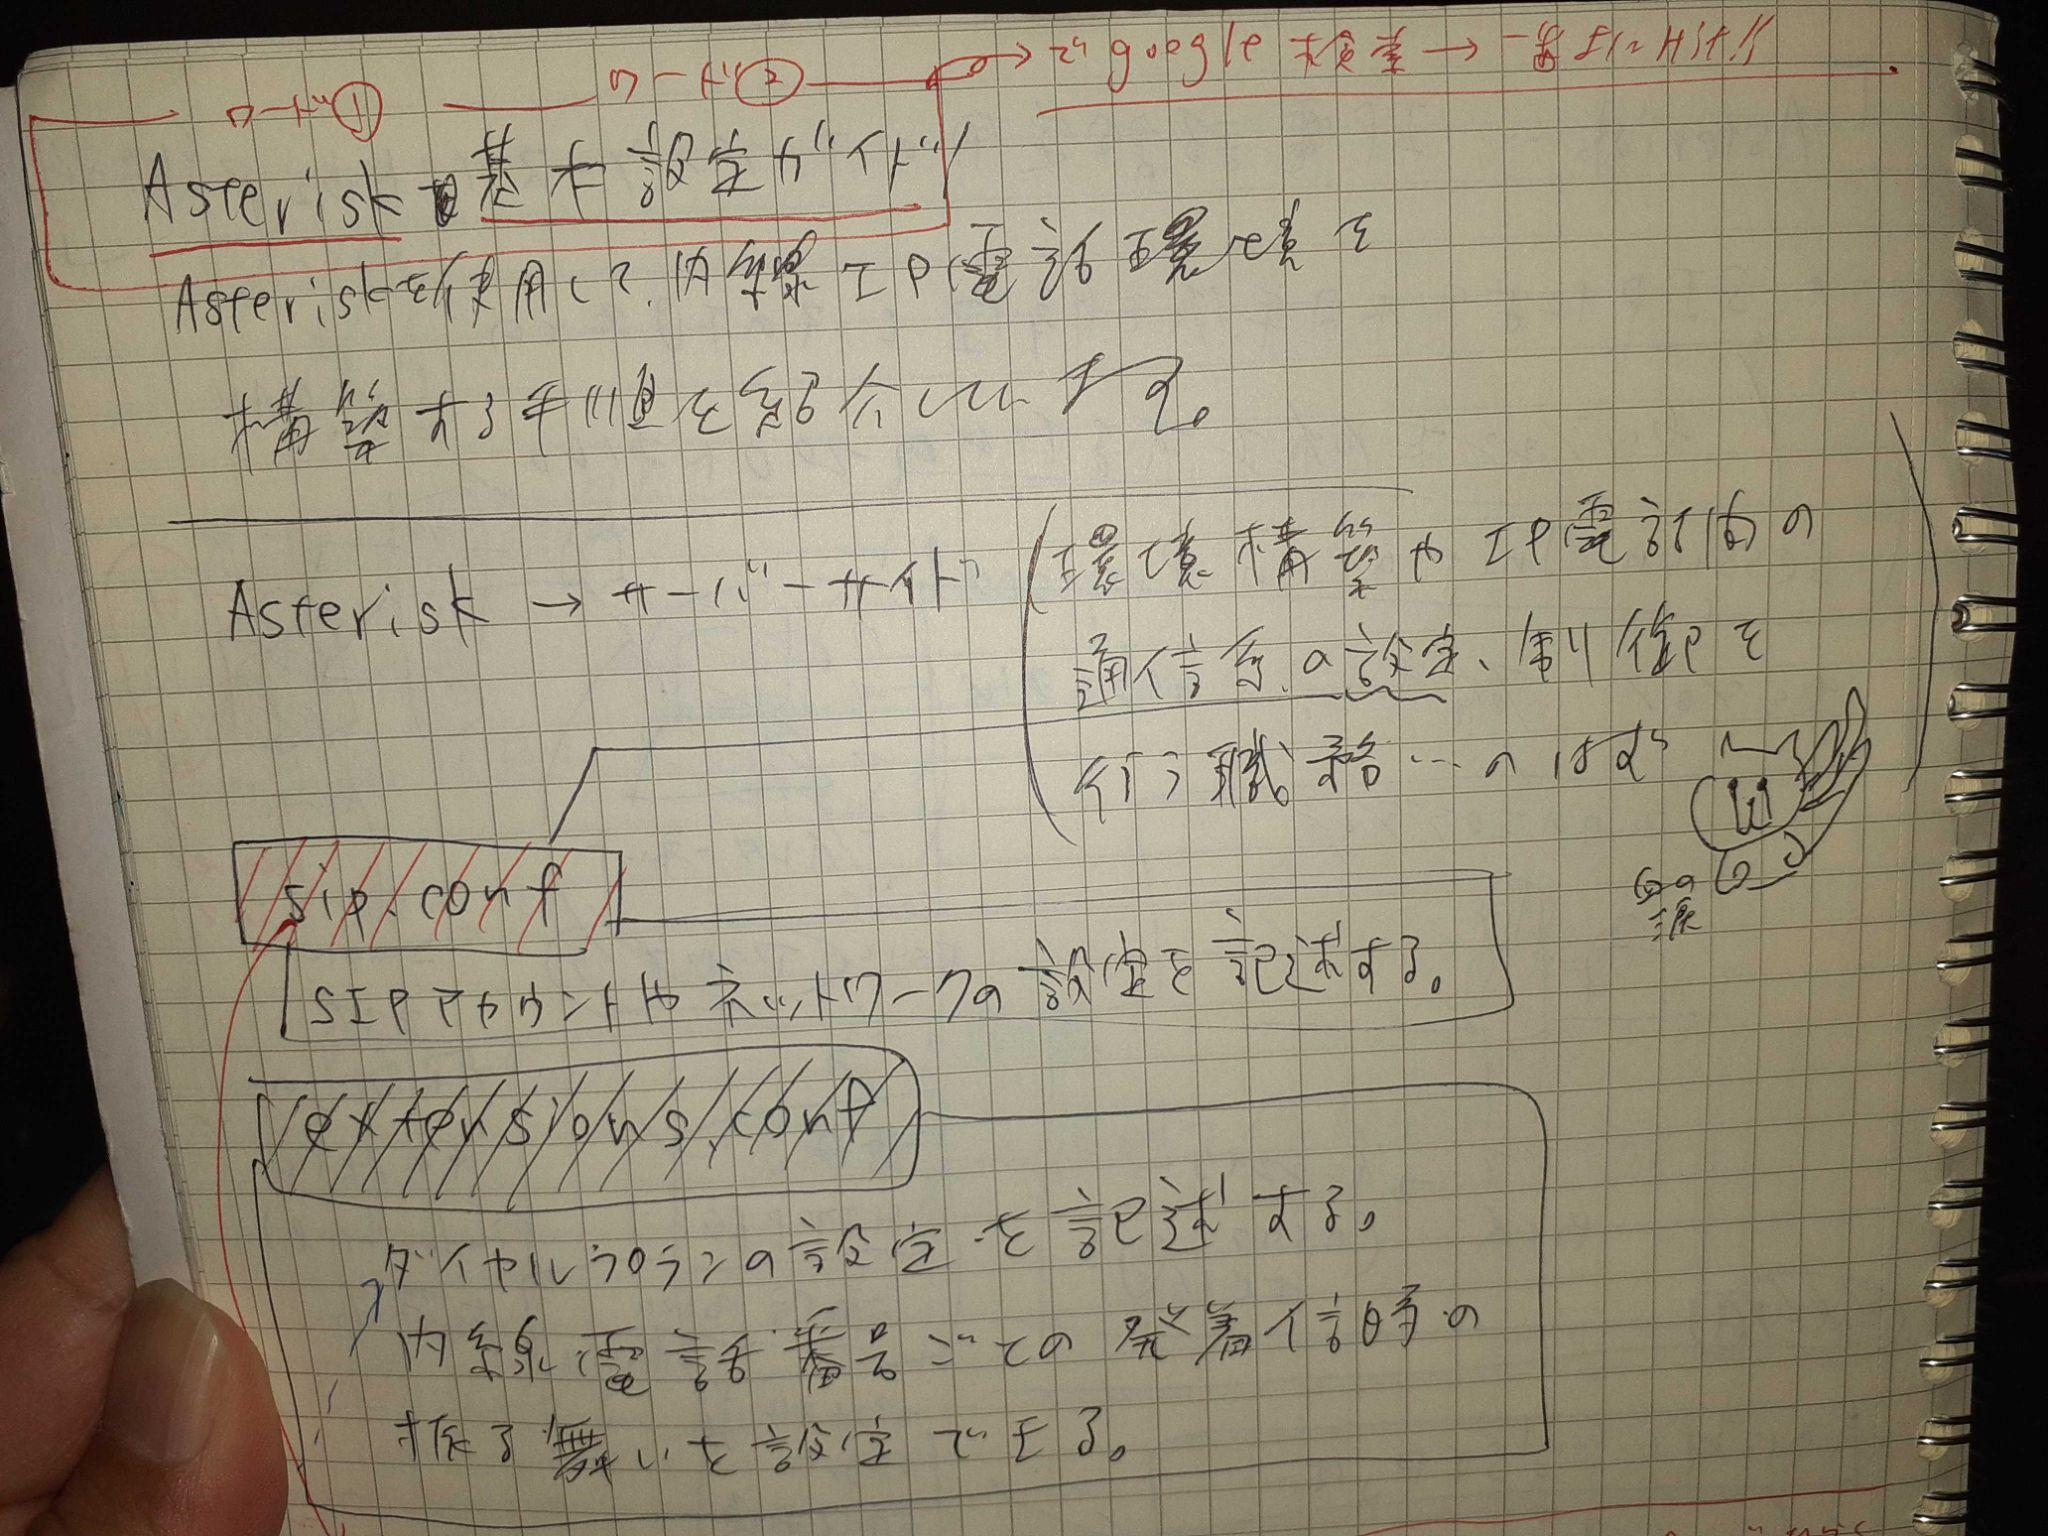 ワード① ワード② → で google 検索 → 一番上にHit!!
Asterisk 基本設定ガイド
Asteriskを使用して、内線IP電話環境を
構築する手順を紹介しています。
Asterisk → サーバーサイド (環境構築やIP電話間の
通信系の設定、制御を
行う職務…のはず)
sip.conf
SIPアカウントやネットワークの設定を記述する。
extensions.conf
ダイヤルプランの設定を記述する。
内線電話番号ごとの発着信時の
振る舞いを設定できる。